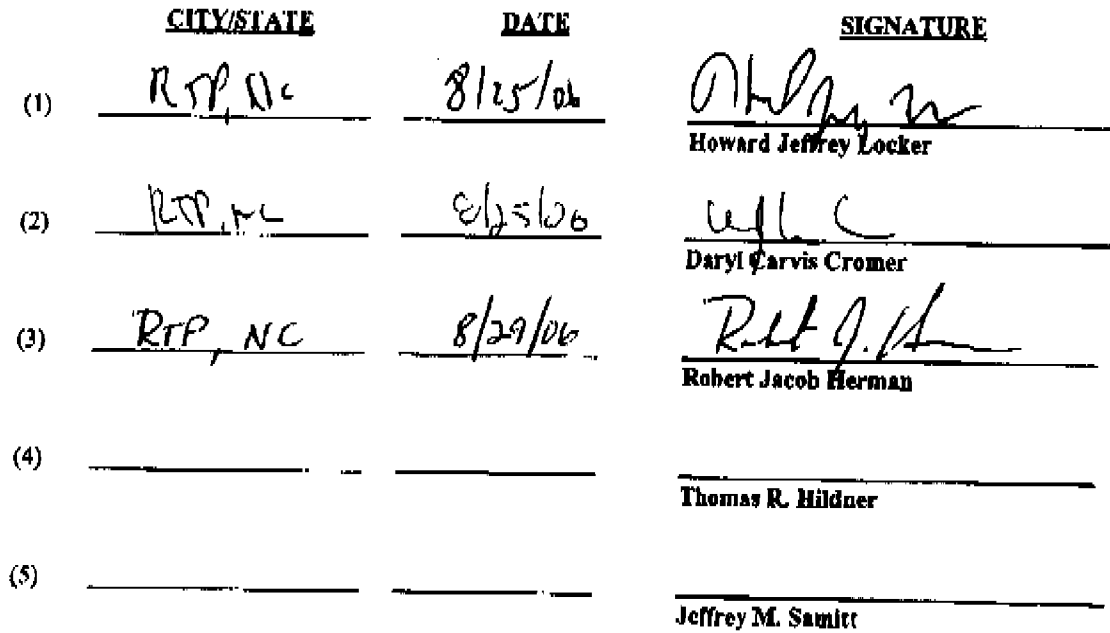 CITY/STATE DATE SIGNATURE
(1) RTP, NC 8/25/06
Howard Jeffrey Locker
(2) RTP, NC 8/25/06
Daryl Carvis Cromer
(3) RTP, NC 8/29/06 Robert J. Herman
Robert Jacob Herman
(4)
Thomas R. Hildner
(5)
Jeffrey M. Samitt